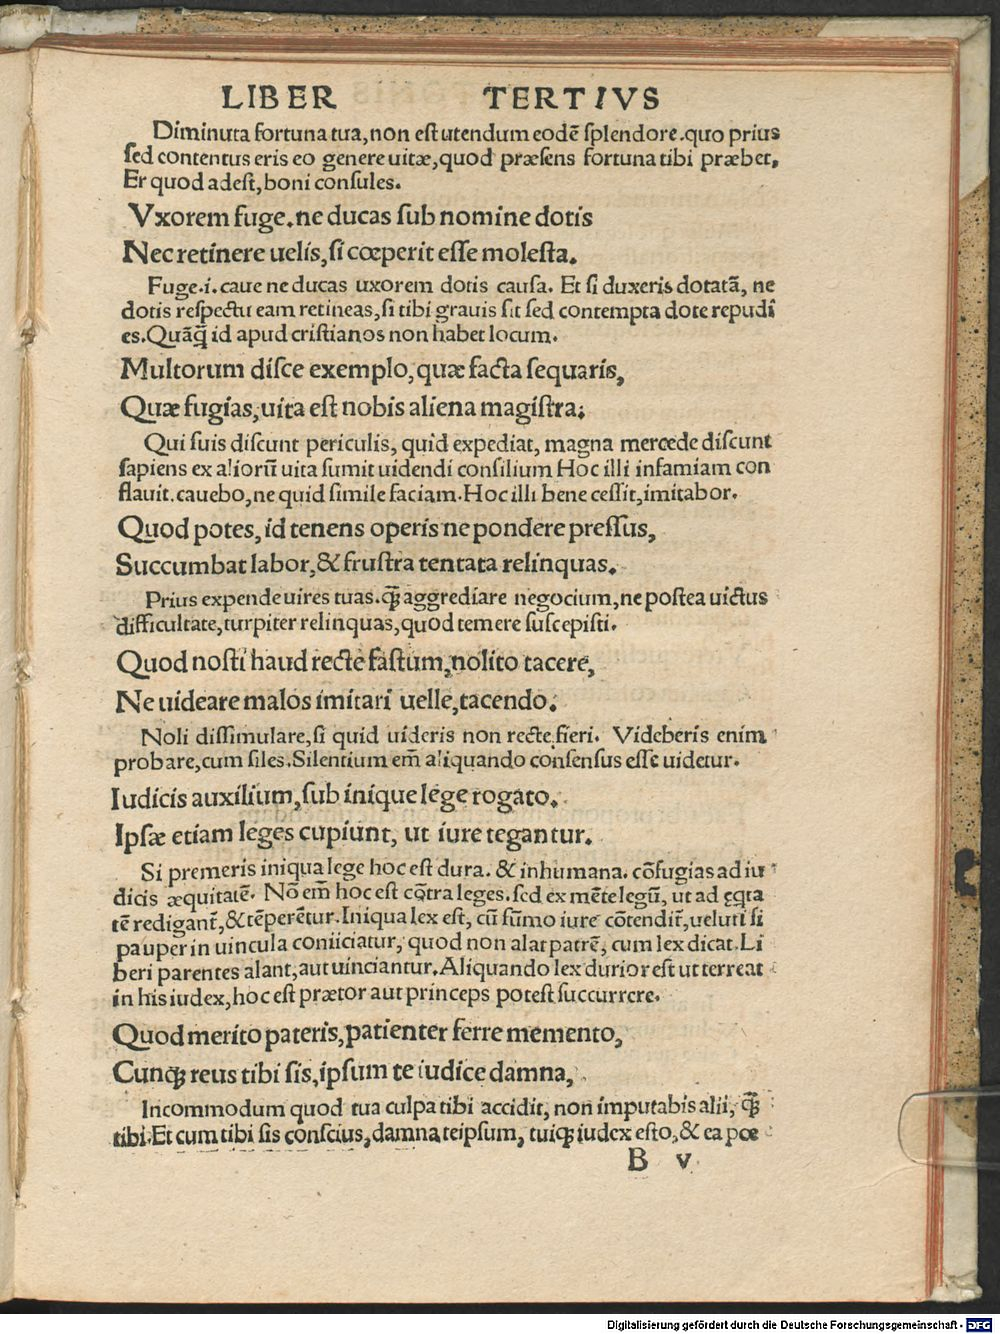 LIBER TERTIVS
Diminuta fortuna tua, non est utendum eodē splendore. quo prius
sed contentus eris eo genere uitæ, quod præsens fortuna tibi præbet,
Et quod adest, boni consules.
Vxorem fuge. ne ducas sub nomine dotis
Nec retinere uelis, si cœperit esse molesta.
Fuge. i. caue ne ducas uxorem dotis causa. Et si duxeris dotatā, ne
dotis respectu eam retineas, si tibi grauis sit sed contempta dote repudi
es. Quāq̄ id apud cristianos non habet locum.
Multorum disce exemplo, quæ facta sequaris,
Quæ fugias, uita est nobis aliena magistra;
Qui suis discunt periculis, quid expediat, magna mercede discunt
sapiens ex aliorū uita sumit uidendi consilium Hoc illi infamiam con
flauit. cauebo, ne quid simile faciam. Hoc illi bene cessit, imitabor.
Quod potes, id tenens operis ne pondere pressus,
Succumbat labor, & frustra tentata relinquas.
Prius expende uires tuas. q̄ꝫ aggrediare negocium, ne postea uictus
difficultate, turpiter relinquas, quod temere suscepisti.
Quod nosti haud recte fastum, nolito tacere,
Ne uideare malos imitari uelle, tacendo.
Noli dissimulare, si quid uideris non recte fieri. Videberis enim
probare, cum siles. Silentium em̄ aliquando consensus esse uidetur.
Iudicis auxilium, sub inique lege rogato.
Ipsæ etiam leges cupiunt, ut iure tegantur.
Si premeris iniqua lege hoc est dura. & inhumana. cōfugias ad iu
dicis æquitatē. Nō em̄ hoc est cōtra leges. sed ex mēte legū, ut ad ęq̄ta
tē redigant̄, & tēperētur. Iniqua lex est, cū sūmo iure cōtendit̄, ueluti si
pauper in uincula coniiciatur, quod non alat patrē, cum lex dicat. Li
beri parentes alant, aut uinciantur. Aliquando lex durior est ut terreat
in his iudex, hoc est prætor aut princeps potest succurrere.
Quod merito pateris, patienter ferre memento,
Cunqꝫ reus tibi sis, ipsum te iudice damna,
Incommodum quod tua culpa tibi accidit, non imputabis alii, q̄ꝫ
tibi. Et cum tibi sis conscius, damna teipsum, tuiqꝫ iudex esto, & ea pœ
B v
Digitalisierung gefördert durch die Deutsche Forschungsgemeinschaft - DFG